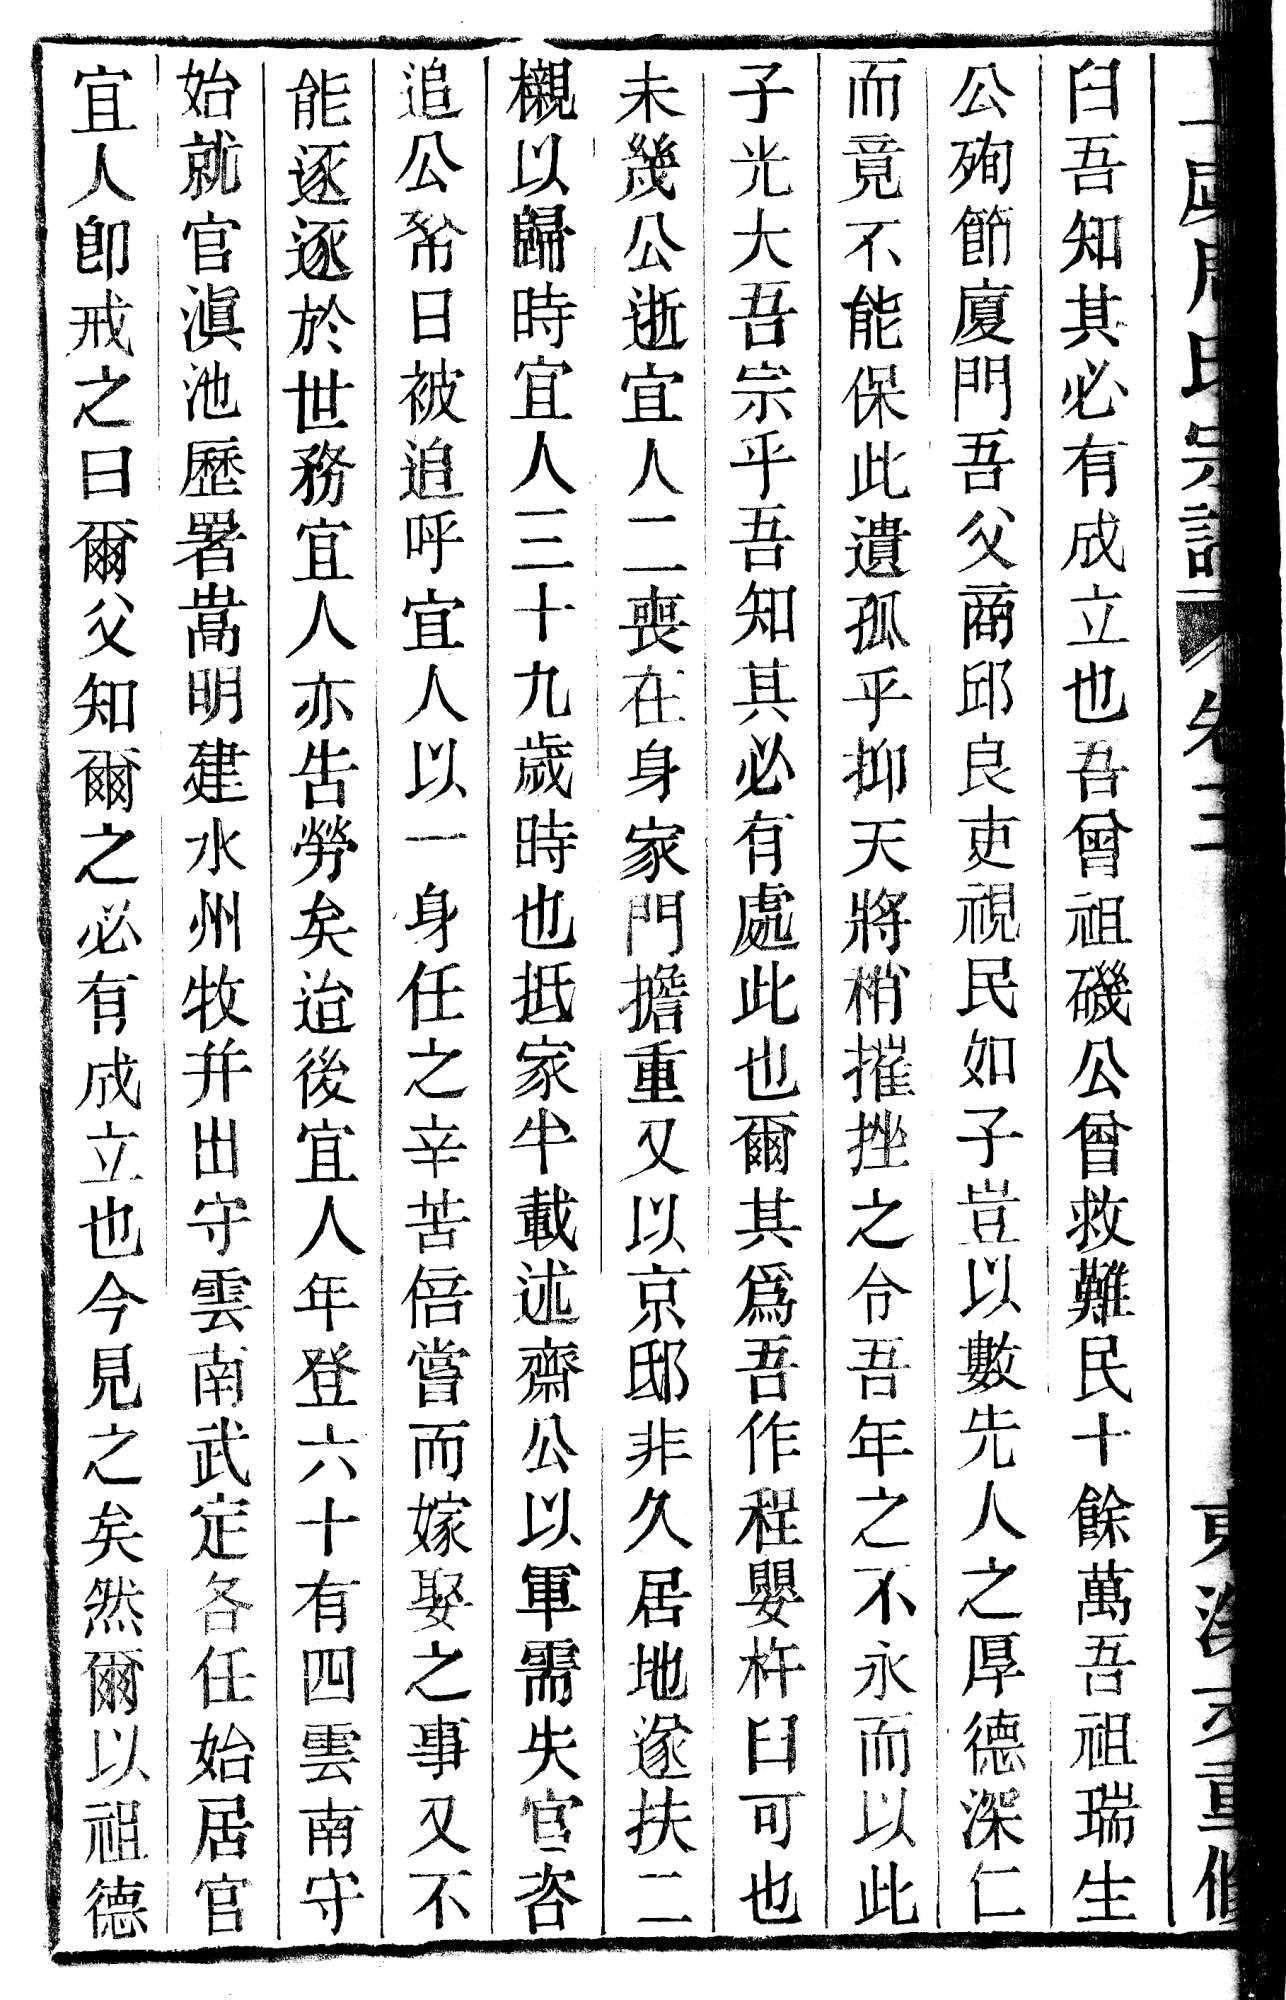 虞周氏宗譜 卷三 東溪 重修
臼吾知其必有成立也吾曾祖磯公曾救難民十餘萬吾祖瑞生
公殉節廈門吾父商邱良吏視民如子豈以數先人之厚德深仁
而竟不能保此遺孤乎抑天將稍摧挫之令吾年之不永而以此
子光大吾宗乎吾知其必有處此也爾其爲吾作程嬰杵臼可也
未幾公逝宜人二喪在身家門擔重又以京邸非久居地遂扶二
櫬以歸時宜人三十九歲時也抵家半載述齋公以軍需失官咨
追公帑日被追呼宜人以一身任之辛苦倍嘗而嫁娶之事又不
能逐逐於世務宜人亦吿勞矣迨後宜人年登六十有四雲南守
始就官滇池歷署嵩明建水州牧幷出守雲南武定各任始居官
宜人卽戒之曰爾父知爾之必有成立也今見之矣然爾以祖德